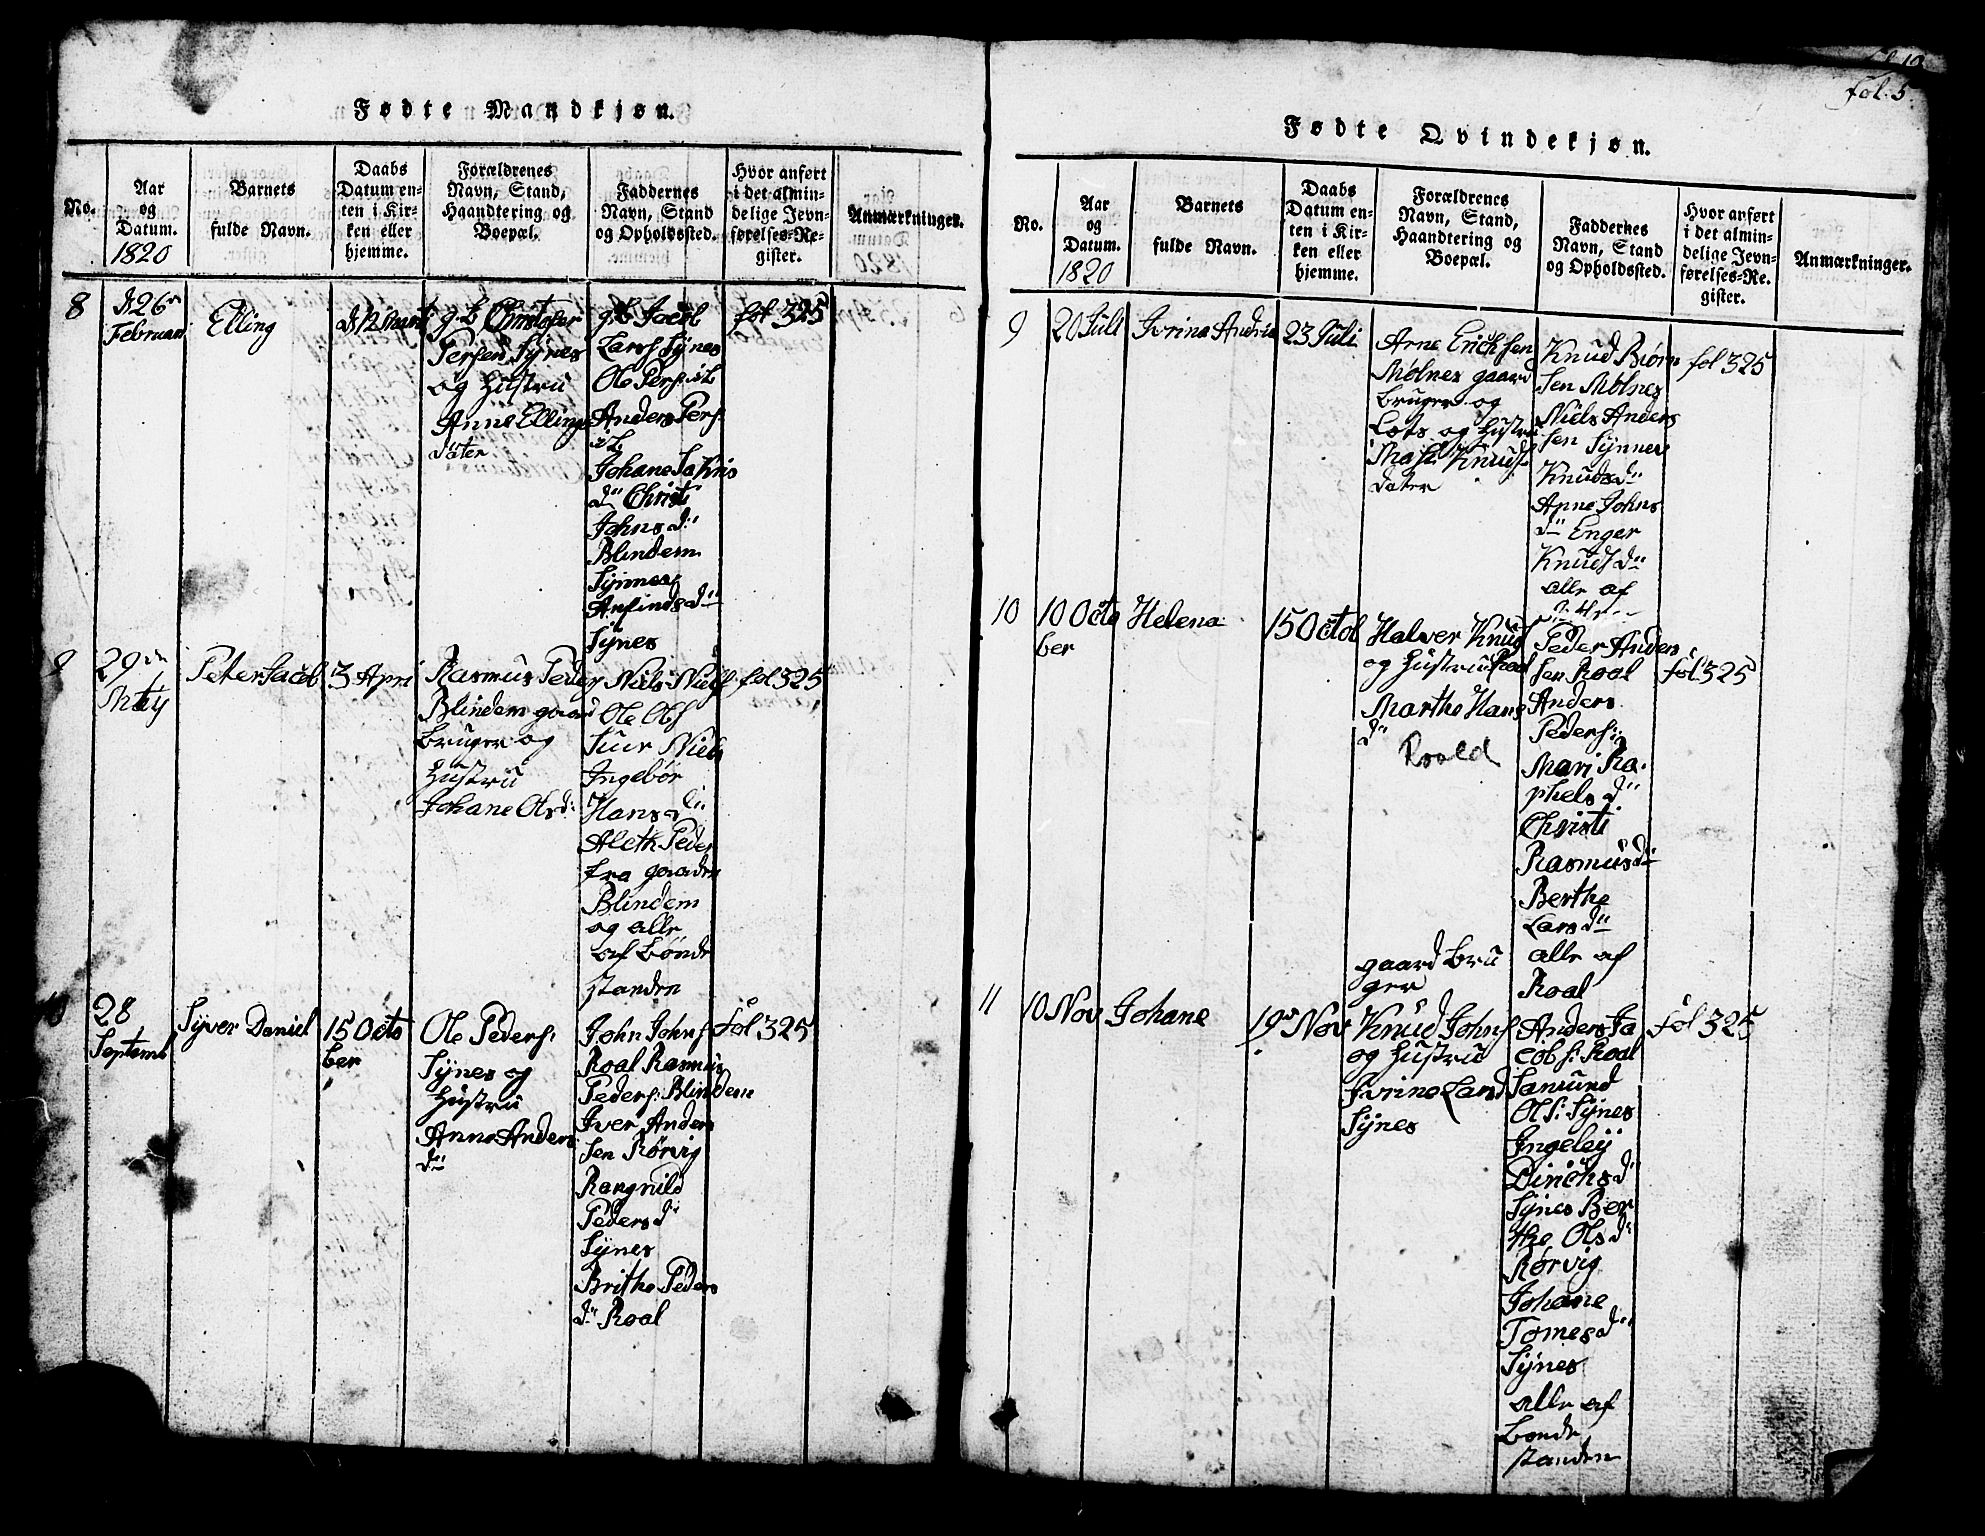 fol. 5.
Fødte Mandkjøn.
No.
Aar
og
Datum.
1820
Barnets
fulde Navn.
Daabs
Datum en-
ten i Kir-
ken eller
hjemme.
Forældrenes
Navn, Stand,
Haandtering og
Boepæl.
Faddernes
Navn, Stand
og Opholdssted.
Hvor anført
i det almin-
delige Jevn-
førelses-Re-
gister.
Anmærkninger.
8
Februari
Elling
g.b. Christofer
Persen Sÿnes
og Hustru
Anne Ellings
dater
g.b. Jacob
Lars Sÿnes
Ole Pers.
Anders Pers
Johane
d: Christi
Johns d:
Blindem
Sÿnnes
Arfinds d:
Sÿnes
fol 325
9
29
Maÿ
Peter Jacob
3 Apri
Rasmus Peder
Blindem gaard
bruger og
Hustru
Johane Ols d:
Niels Niels
Ole Ols
Siur Niels
Ingebor
Hans d:
Aleth Peder
fra gaarden
Blindem
og alle
af bonde
standen
fol 325
28
Septemb
Sÿver Daniel
15 Octo
ber
Ole Peders:
Sÿnes og
Hustru
Anne Anders
d:
John Johns
Roal Rasmus
Peders: Blindem
Iver Anders
sen Rørvig
Rangnild
Peders d:
Sÿnes
Brithe Peders
d: Roal
fol 325
Fødte Qvindekjøn.
No.
Aar
og
Datum.
1820
Barnets
fulde Navn.
Daabs
Datum en-
ten i Kir-
ken eller
hjemme.
Forældrenes
Navn, Stand,
Haandtering og
Boepæl.
Faddernes
Navn, Stand
og Opholdssted.
Hvor anført
i det almin-
delige Jevn-
førelses-Re-
gister.
Anmærkninger.
9
20 Juli
Ivrine Andrin
23 Juli
Arne Erichsen
Molnes gaard
bruger og
Lots og Hustru
Knuds
dater
Knud Biørn
sen Molnes
Niels Anders
sen Sÿnnes
Knuds d:
Anne Johns
d: Enger
Knuds d:
alle af
fol 325
10
10 Octo
ber
Helena
15 Octob
Halver Knud
og Hustru Roal
Marthe Hans
d:
Roald
gaard bru
ger
Peder Anders
sen Roal
Anders
Peders:
Mari Ra-
phels d:
Christi
Rasmus d:
Berthe
Lars d:
alle af
Roal
fol 325
11
10 Nov
Johane
19 Nov
Knud Johns
og Hustru
Ivrine Lars d
Sÿnes
Anders Ja
cobs: Roal
Samund
Ols: Sÿnes
Ingeleÿ
Dinichs d:
Sÿnes Ber
the Ols d:
Rørvig
Johane
Tomes d:
Sÿnes
alle af
bonde
standen
fol 325